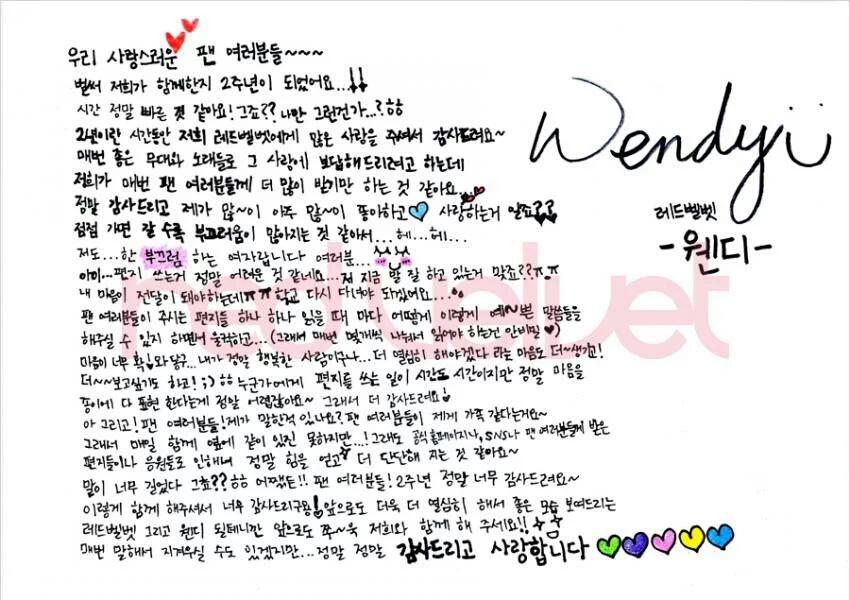 우리 사랑스러운 팬 여러분들~~~~
벌써 저희가 함께한지 2주년이 되었어요...!!
시간 정말 빠른 것 같아요! 그죠?? 나만 그런건가...? ㅎㅎ
2년이란 시간동안 저희 레드벨벳에게 많은 사랑을 주셔서 감사드려요~
매번 좋은 무대와 노래들로 그 사랑에 보답해드리려고 하는데
저희가 매번 팬 여러분들께 더 많이 받기만 하는 것 같아요...
정말 감사드리고 제가 많~이 아주 많~이 좋아하고 사랑하는거 알죠??
점점 가면 갈 수록 부끄러움이 많아지는 것 같아서...헤...헤...
저도...한 부끄럼 하는 여자랍니다 여러분...
아이...편지 쓰는거 정말 어려운 것 같네요...저 지금 말 잘 하고 있는거 맞죠??ㅠㅠ
내 마음이 전달이 돼야하는데ㅠㅠ 학교 다시 다녀야 되겠어요...
팬 여러분들이 주시는 편지들 하나 하나 읽을 때 마다 어떻게 이렇게 예~쁜 말씀들을
해주실 수 있지 하면서 울컥하고...(그래서 매번 몇개씩 나눠서 읽어야 하는건 안비밀♥)
마음이 너무 확! 와닿구...내가 정말 행복한 사람이구나...더 열심히 해야겠다 라는 마음도 더~생기고!
더~~보고싶기도 하고! ;) ㅎㅎ 누군가에게 편지를 쓰는 일이 시간도 시간이지만 정말 마음을
종이에 다 표현 한다는게 정말 어렵잖아요~ 그래서 더 감사드려요!
아 그리고! 팬 여러분들! 제가 말한적 있나요? 팬 여러분들이 제게 가족 같다는거요~
그래서 매일 함께 옆에 같이 있진 못하지만...! 그래도 공식홈페이지나, SNS나 팬 여러분들께 받은
편지들이나 응원들로 인해서 정말 힘을 얻고 더 단단해 지는 것 같아요~
말이 너무 길었다 그쵸?? ㅎㅎ 어쨌든!! 팬 여러분들! 2주년 정말 너무 감사드려요~
이렇게 함께 해주셔서 너무 감사드리구용! 앞으로도 더욱 더 열심히 해서 좋은 모습 보여드리는
레드벨벳 그리고 웬디 될테니깐 앞으로도 쭈~욱 저희와 함께 해 주세요!!
매번 말해서 지겨우실 수도 있겠지만...정말 정말 감사드리고 사랑합니다
Wendy
레드벨벳
-웬디-
red velvet